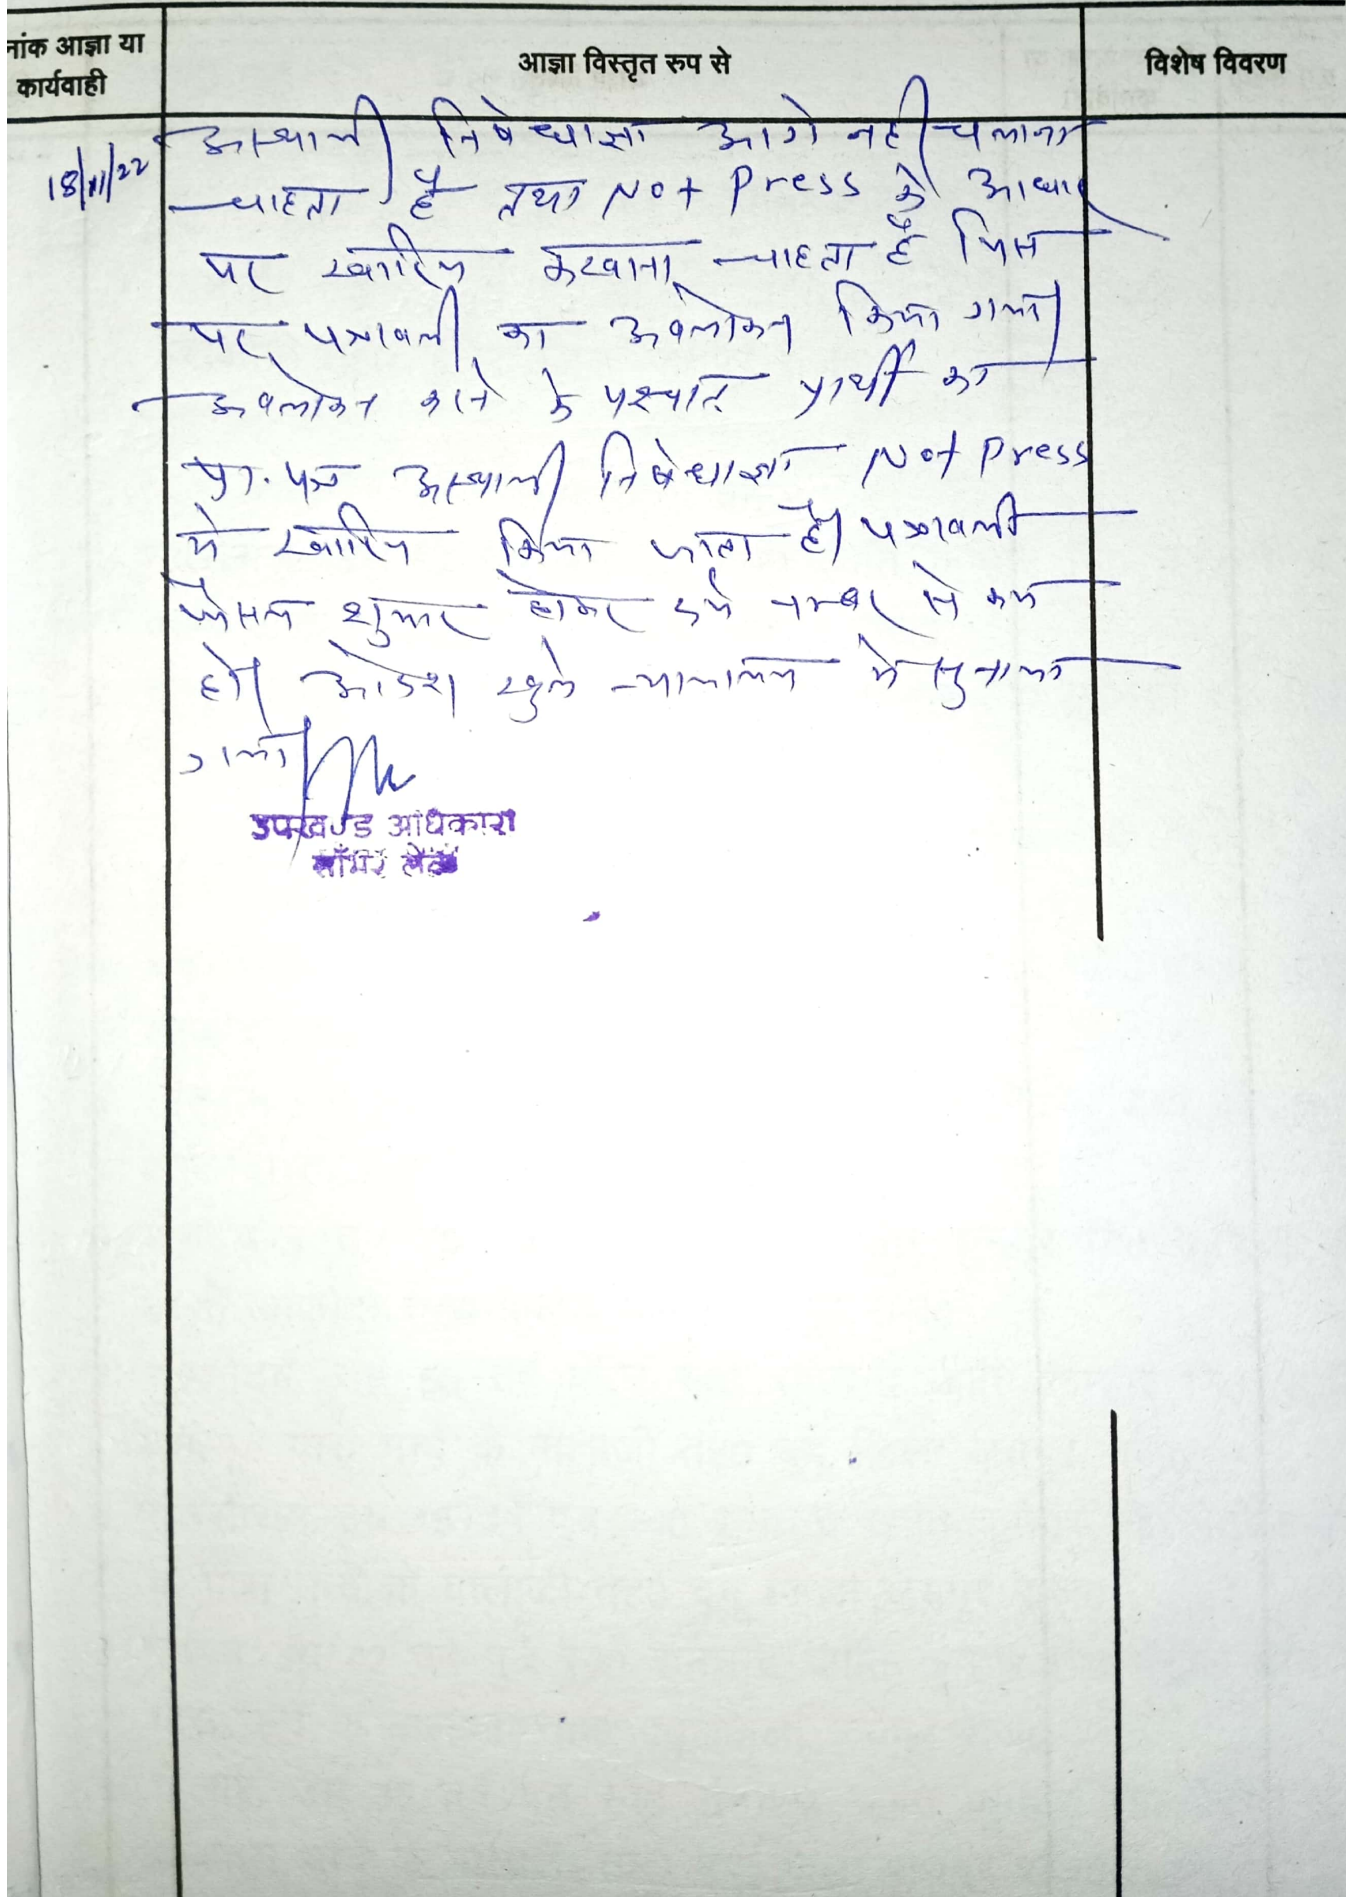 नांक आज्ञा या
कार्यवाही
आज्ञा विस्तृत रुप से
विशेष विवरण
18/11/22
अस्थायी निषेधाज्ञा आगे नही चलाना
चाहता है तथा Not Press के आधार
पर खारिज करवाना चाहता है जिस
पर पत्रावली का अवलोकन किया गया।
अवलोकन करने के पश्चात प्रार्थी का
प्रा. पत्र अस्थायी निषेधाज्ञा Not Press
मे खारिज किया जाता है। पत्रावली
फैसल शुमार होकर दर्ज नम्बर से कम
हो। आदेश खुले न्यायालय मे सुनाया
गया।
उपखण्ड अधिकारी
साँभर लेक